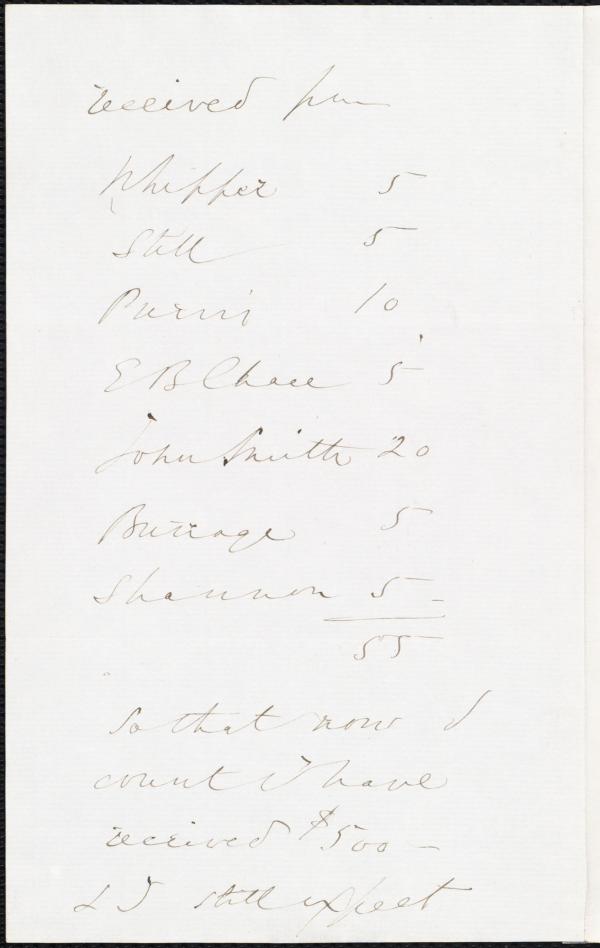 received from
Whipper 5
Still 5
Purvis 10
E B Chace 5
John Smith 20
Burrage 5
Shannon 5
55
so that now I
count I have
received $500 –
& I still expect